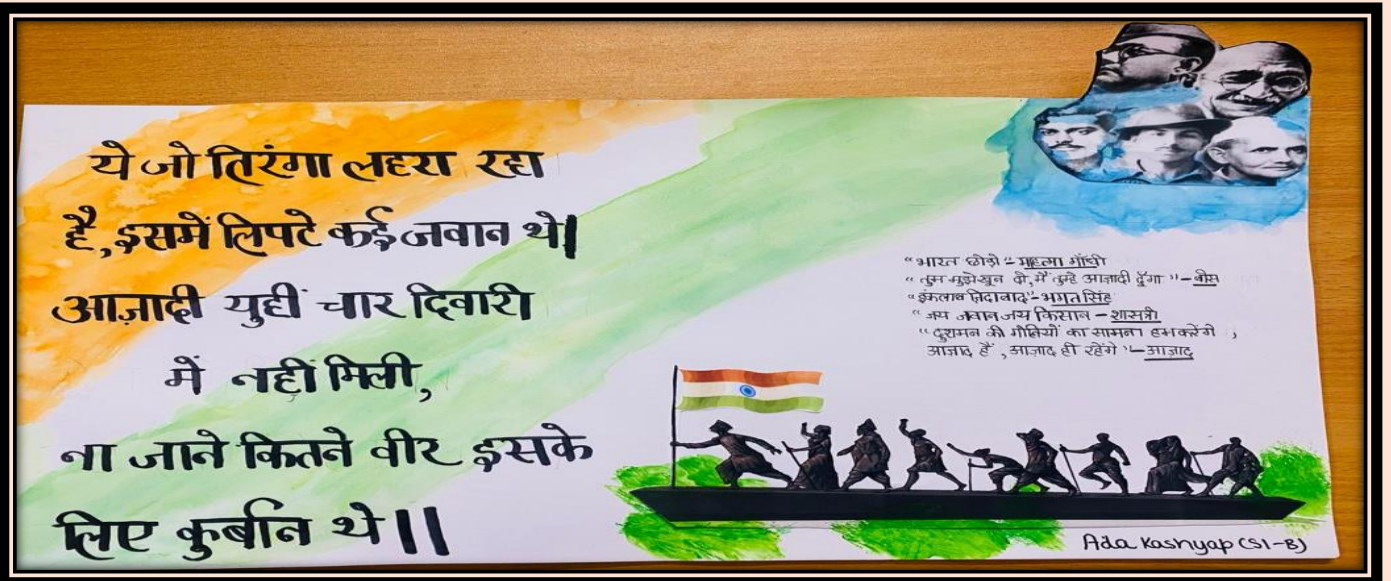 ये जो तिरंगा लहरा रहा
है, इसमें लिपटे कई जवान थे|
आज़ादी युहीं चार दिवारी
में नहीं मिली,
ना जाने कितने वीर इसके
लिए कुर्बान थे||
"भारत छोड़ो" - महात्मा गाँधी
"तुम मुझे खून दो, मैं तुम्हे आज़ादी दूँगा" - बोस
"इंकलाब ज़िंदाबाद" - भगत सिंह
"जय जवान जय किसान - शास्त्री
"दुशमन की गोलियों का सामना हम करेंगे,
आज़ाद हैं, आज़ाद ही रहेंगे" - आज़ाद
Ada Kashyap (S1-B)